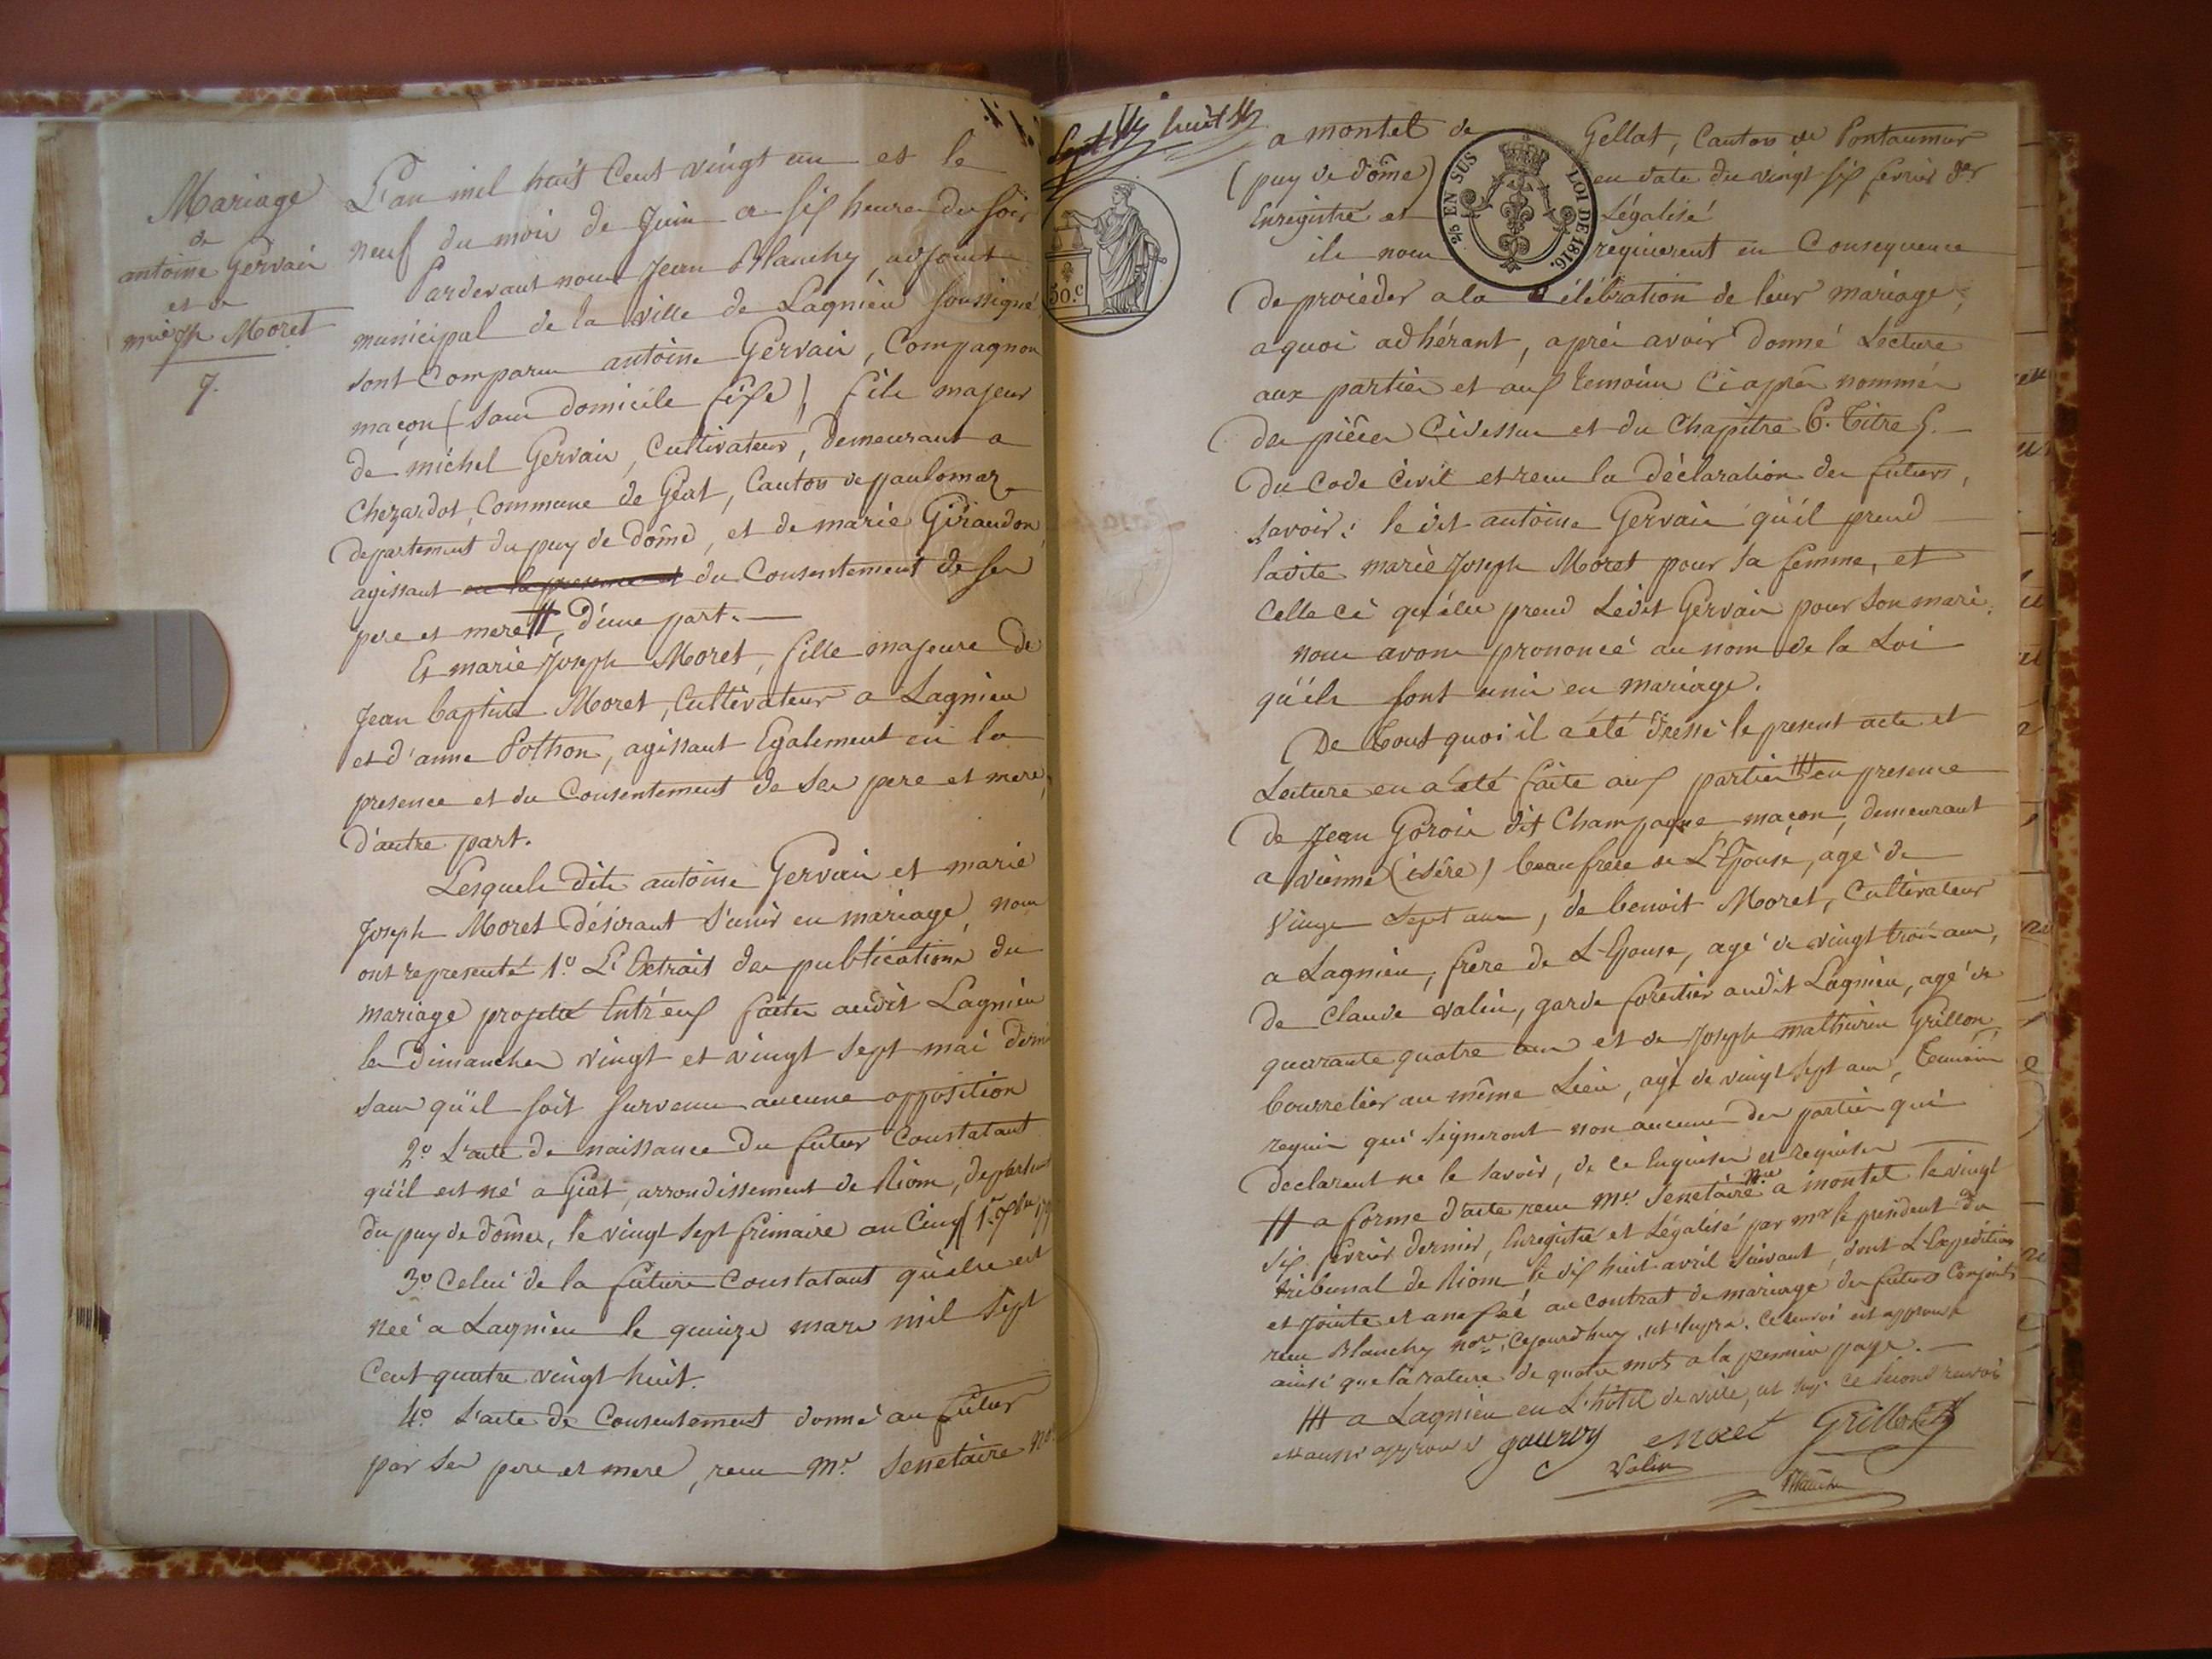 Mariage
de
antoine Gervais
et de
mrie Jph Moret
7.
L'an mil huit Cent vingt un et le
neuf du mois de Juin a six heures du soir
Pardevant nous Jean Blanchy, adjoint
municipal de la ville de Lagnieu soussigné
sont comparus antoine Gervais, Compagnon
maçon (sans domicile fixe) fils majeur
de michel Gervais, Cultivateur, demeurant a
Chezardot, Commune de Geat, Canton de paulomar
departement du puy de dôme, et de marie Giraudon,
agissant en la presence et du Consentement de ses
pere et mere ++, d'une part.
Et marie Joseph Moret, fille majeure de
Jean baptiste Moret, Cultivateur a Lagnieu
et d'anne Pothon, agissant Egalement en la
presence et du Consentement de ses pere et mere,
d'autre part.
Lesquels dits antoine Gervais et marie
Joseph Moret désirant s'unir en mariage, nous
ont representé 1.º L'Extrait des publications du
mariage projetté Entr'eux faites audit Lagnieu
les dimanches vingt et vingt sept mai dern
sans qu'il soit survenu aucune opposition
2.º L'acte de naissance du futur Constatant
qu'il est né a Giat, arrondissement de Riom, departement
du puy de dôme, le vingt sept frimaire an Cinq
3.º Celui de la future Constatant qu'elle est
née a Lagnieu le quinze mars mil sept
Cent quatre vingt huit.
4.º L'acte de Consentement donné au futur
par ses pere et mere, recu Mr. Senetaire Nre.
Sept huit
50.c
2/5 EN SUS
LOI DE 1816.
a montel de Gellat, Canton de Pontaumur
(puy de dôme) en date du vingt six fevrier der
Enregistré et Légalisé
ils nous requierent en Consequence
de procéder a la Célébration de leur mariage;
a quoi adhérant, après avoir donné Lecture
aux parties et aux temoins Ci après nommés
des pièces Cidessus et du Chapitre 6. Titre 5.
du Code Civil et recu la déclaration des futurs,
savoir: le dit antoine Gervais qu'il prend
ladite marie Joseph Moret pour sa femme, et
Celle ci qu'elle prend Ledit Gervais pour son mari;
nous avons prononcé au nom de la Loi
qu'ils sont unis en mariage.
De tout quoi il a été dressé le present acte et
Lecture en a été faite aux parties +++ en presence
de Jean Goroi dit Champagne, maçon, demeurant
a vienne (isère) beaufrère de L'Epouse, agé de
vingt sept ans, de benoit Moret, Cultivateur
a Lagnieu, frere de L'Epouse, agé de vingt trois ans,
de Claude valin, garde forestier audit Lagnieu, agé de
quarante quatre ans et de Joseph mathurin Grillon,
bourrelier au même Lieu, agé de vingt sept ans, temoins
requis qui signeront non aucune des parties qui
declarent ne le savoir, de ce Enquises et requises
++ a forme d'acte recu Mr. Senetaire Nre a montel le vingt
six fevrier dernier, Enregistré et Légalisé par mr le president du
tribunal de Riom le dix huit avril suivant, dont L'Expedition
et jointe et annexée au contrat de mariage des futurs Conjoints
recu Blanchy nore, Cejourd'huy, ut supra. Ce renvoi est approuvé
ainsi que la rature de quatre mots a la premiere page.
+++ a Lagnieu en L'hôtel de ville, ut sup. Ce second renvoi
est aussi approuvé
Grillon
Valin
Blanchy